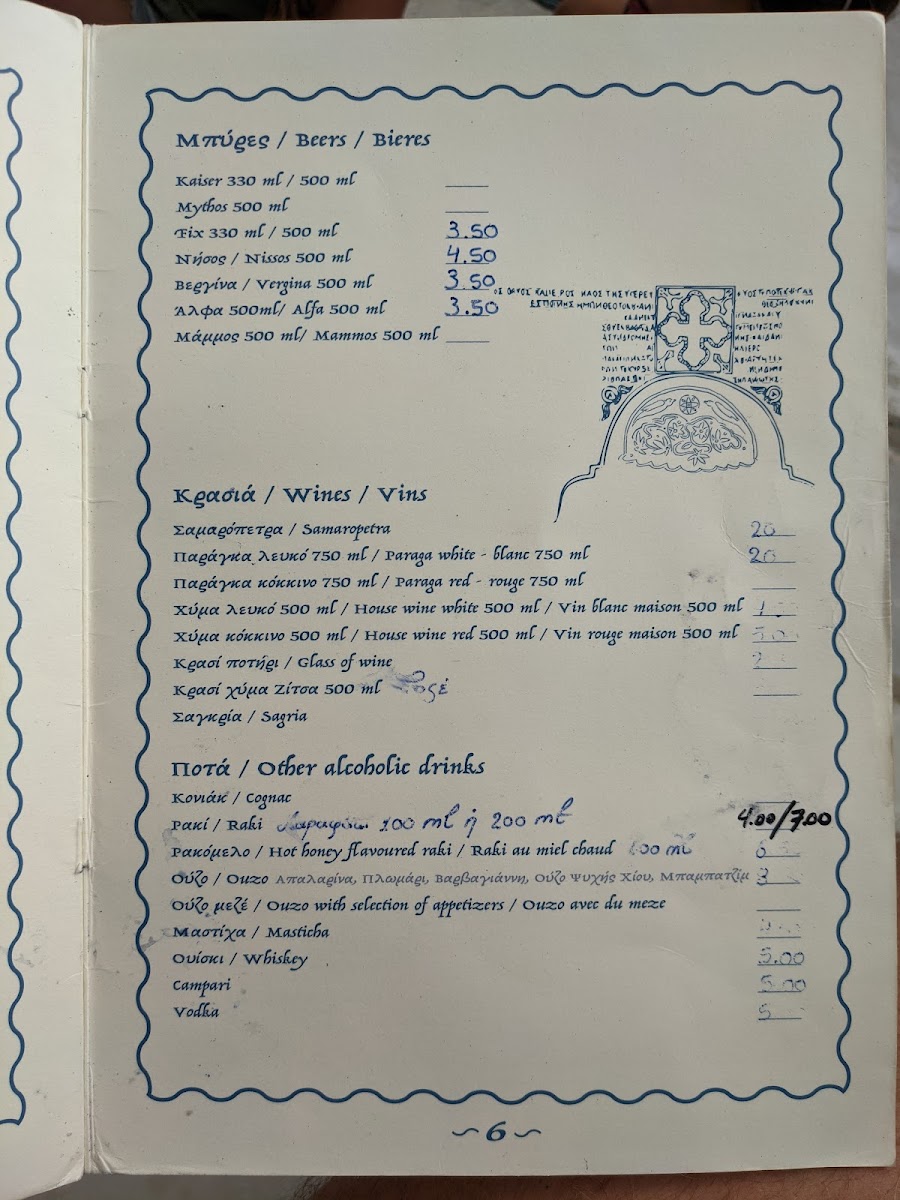 Μπύρες / Beers / Bieres
Kaiser 330 ml / 500 ml
Mythos 500 ml
Fix 330 ml / 500 ml 3.50
Νήσος / Nissos 500 ml 4.50
Βεργίνα / Vergina 500 ml 3.50
Άλφα 500ml/ Alfa 500 ml 3.50
Μάμμος 500 ml/ Mammos 500 ml
Κρασιά / Wines / Vins
Σαμαρόπετρα / Samaropetra 20
Παράγκα λευκό 750 ml / Paraga white - blanc 750 ml 20
Παράγκα κόκκινο 750 ml / Paraga red - rouge 750 ml
Χύμα λευκό 500 ml / House wine white 500 ml / Vin blanc maison 500 ml
Χύμα κόκκινο 500 ml / House wine red 500 ml / Vin rouge maison 500 ml
Κρασί ποτήρι / Glass of wine
Κρασί χύμα Ζίτσα 500 ml
Σαγκρία / Sagria
Ποτά / Other alcoholic drinks
Κονιάκ / Cognac
Ρακί / Raki 100 ml ή 200 ml 4.00/7.00
Ρακόμελο / Hot honey flavoured raki / Raki au miel chaud
Ούζο / Ouzo Απαλαρίνα, Πλωμάρι, Βαρβαγιάννη, Ούζο Ψυχής Χίου, Μπαμπατζίμ 3
Ούζο μεζέ / Ouzo with selection of appetizers / Ouzo avec du meze
Μαστίχα / Masticha
Ουίσκι / Whiskey 5.00
Campari 5.00
Vodka 5
~6~